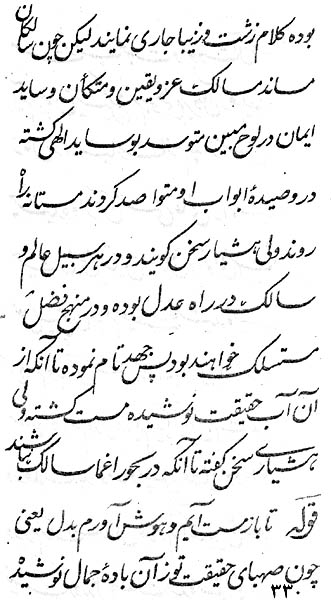 بوده کلام زشت و زیبا جاری نمایند لیکن چون سالکان
ماند مسالک عز و یقین و متکأن وساید
ایمان در لوح مبین متوسد بوساید الهی کشته
در وصیدهٔ ابواب او متواصد کردند مستانه راه
روند ولی هشیار سخن کویند و در هر سبیل عالم و
سالک در راه عدل بوده و در منهج فضل
مستسلک خواهند بود پس جهد تام نموده تا آنکه از
آن آب حقیقت نوشیده مست کشته ولی
هشیاری سخن کفته تا آنکه در بحور اغما سالک باشند
قوله تا باز مست آیم و هوش آورم بدل یعنی
چون صهبای حقیقت تو ز آن بادهٔ جمال نوشیده
۳۳